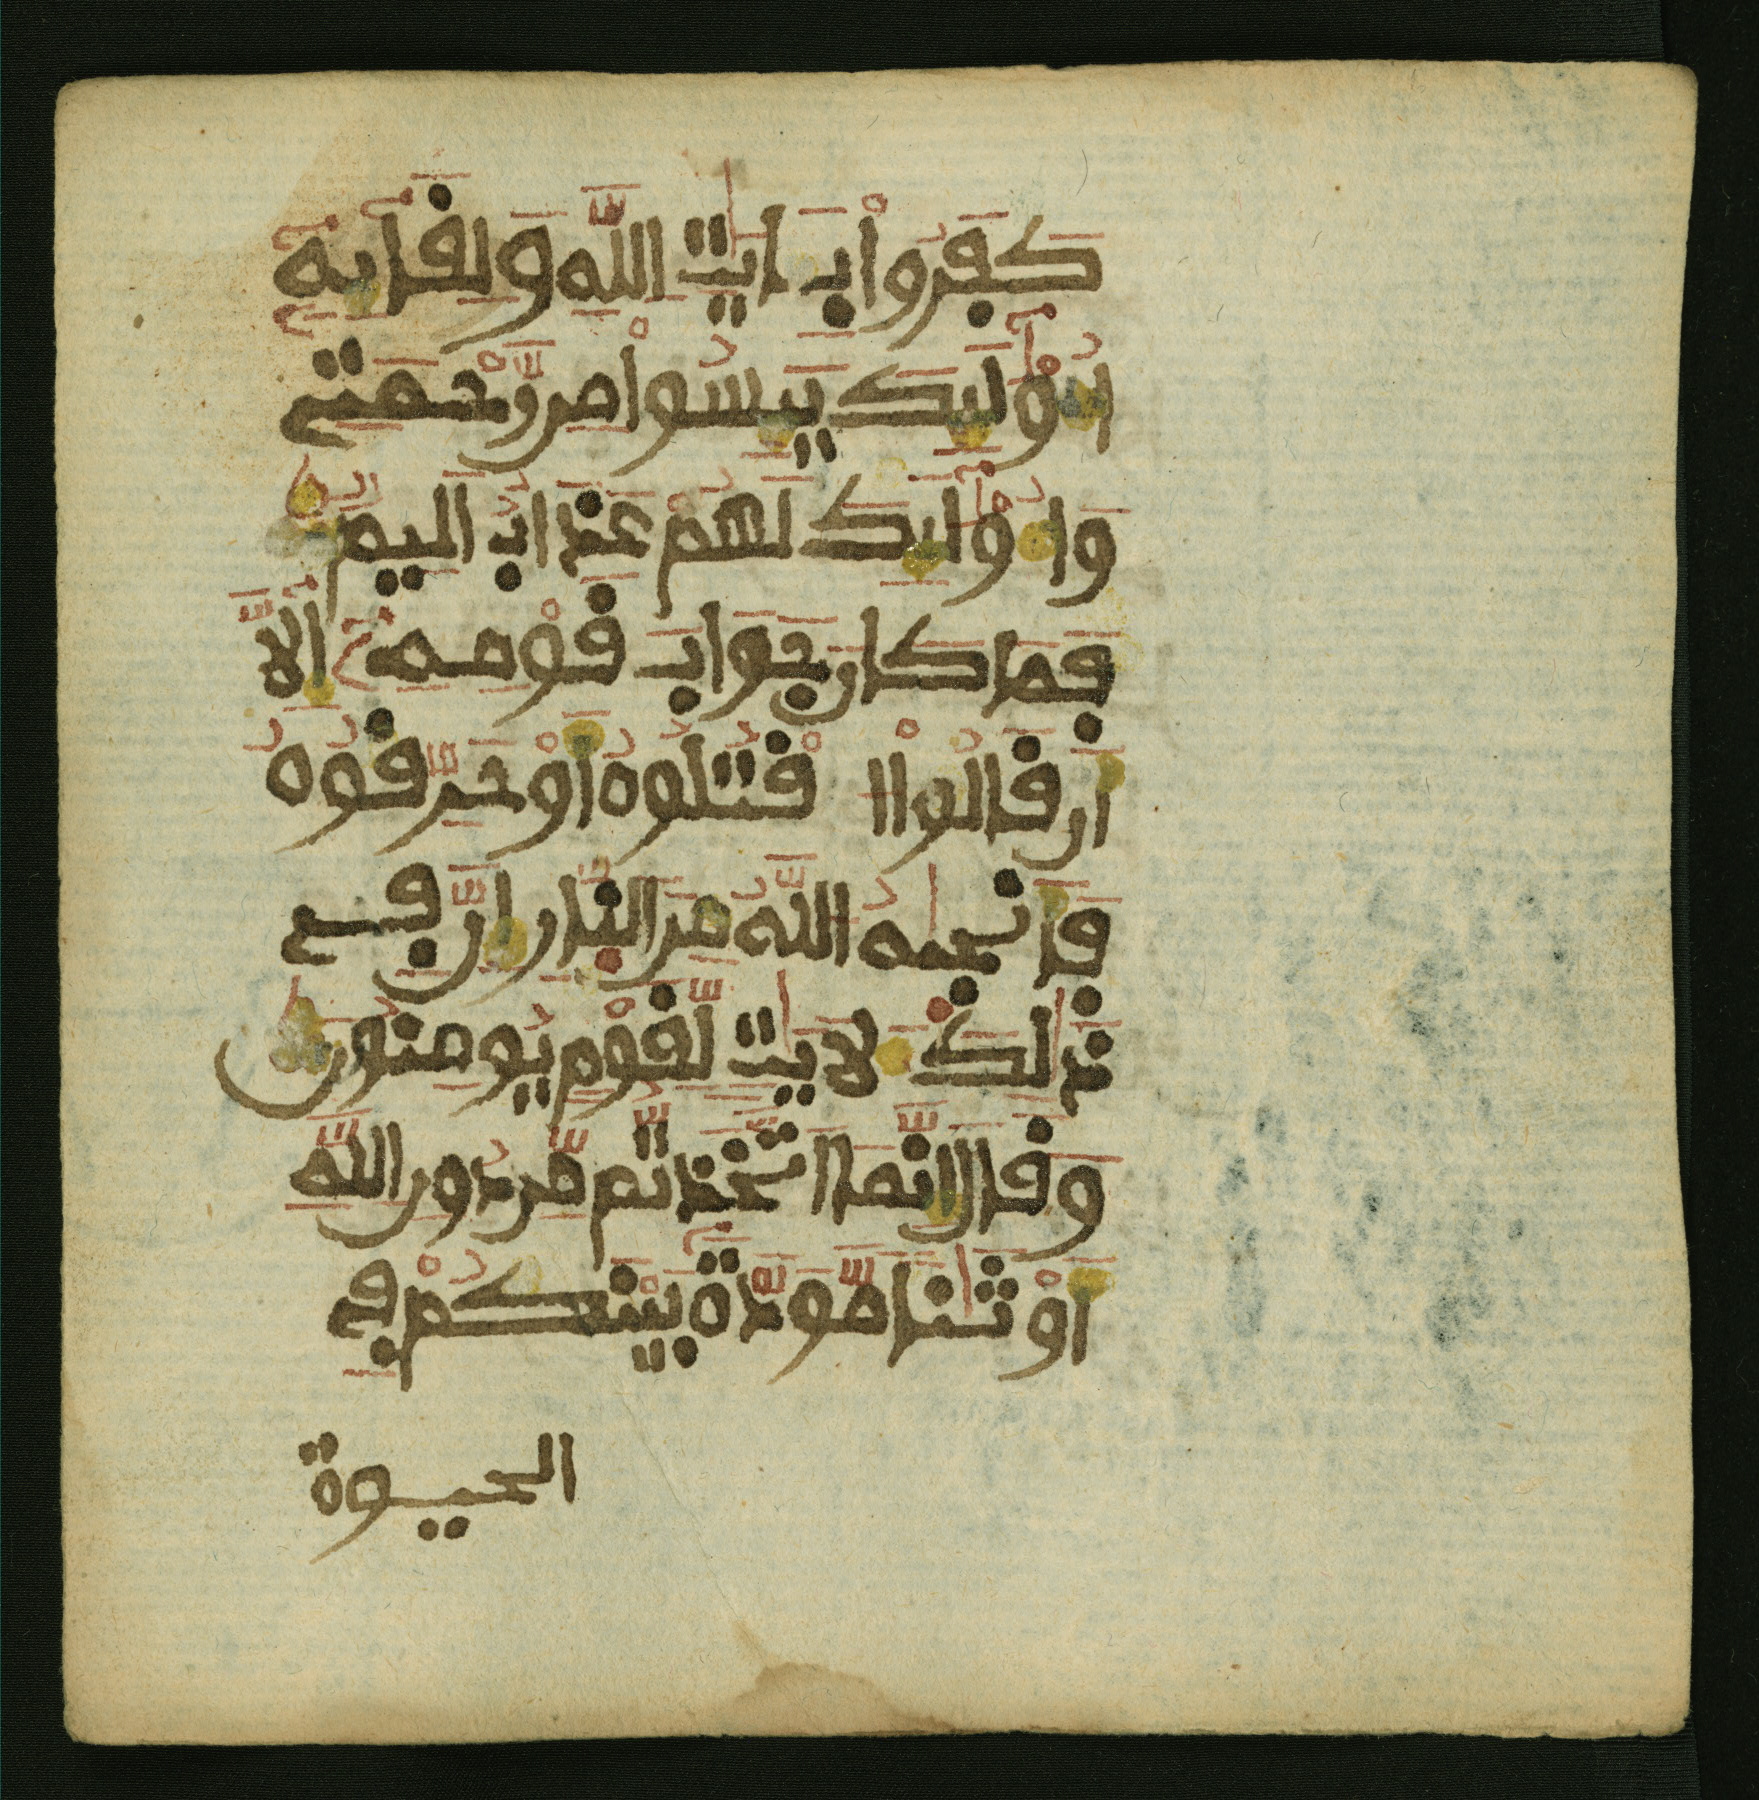 كَفَرُواْ بِـَٔايَٰتِ اللَّهِ وَلِقَآئِهِۦٓ
أُوْلَٰٓئِكَ يَئِسُواْ مِن رَّحْمَتِى
وَأُوْلَٰٓئِكَ لَهُمْ عَذَابٌ أَلِيمٌ
فَمَا كَانَ جَوَابَ قَوْمِهِۦٓ إِلَّآ
أَن قَالُواْ ا قْتُلُوهُ أَوْ حَرِّقُوهُ
فَأَنجَىٰهُ اللَّهُ مِنَ النَّارِ إِنَّ فِى
ذَٰلِكَ لَأَيَٰتٍ لِّقَوْمٍ يُومِنُونَ
وَقَالَ إِنَّمَا اتَّخَذتُّم مِّن دُونِ اللَّهِ
أَوْثَٰنًا مَّوَدَّةً بَيْنَكُمْ فِى
الحيوة